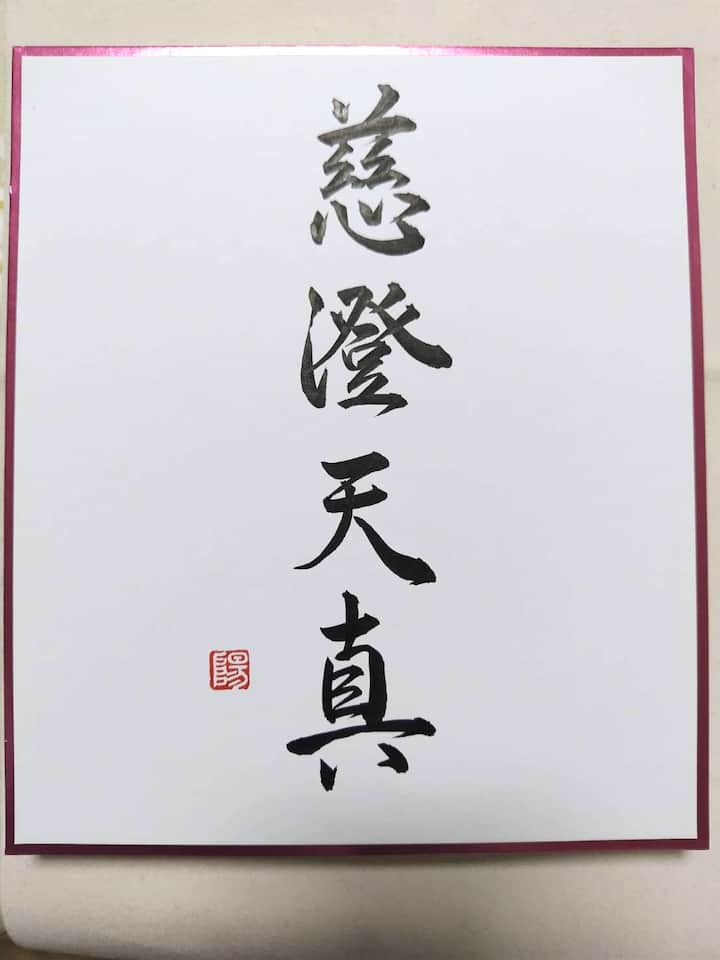 慈澄天真
陽